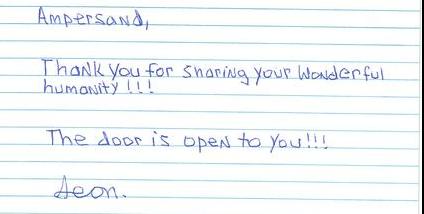 Ampersand,
Thank you for sharing your wonderful
humanity !!!
The door is open to you!!!
Aeon.